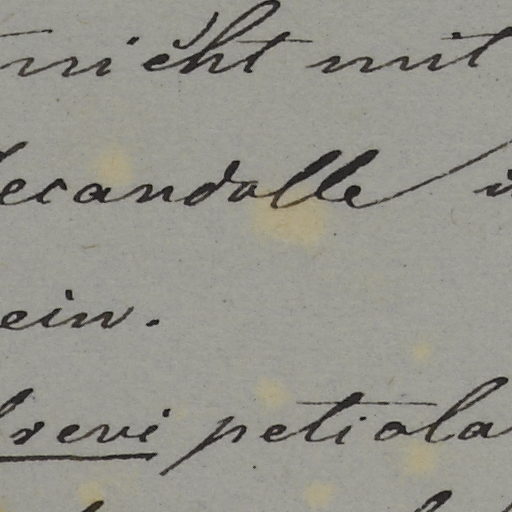 nicht mit
ecandolle
ein.
brevi petiola